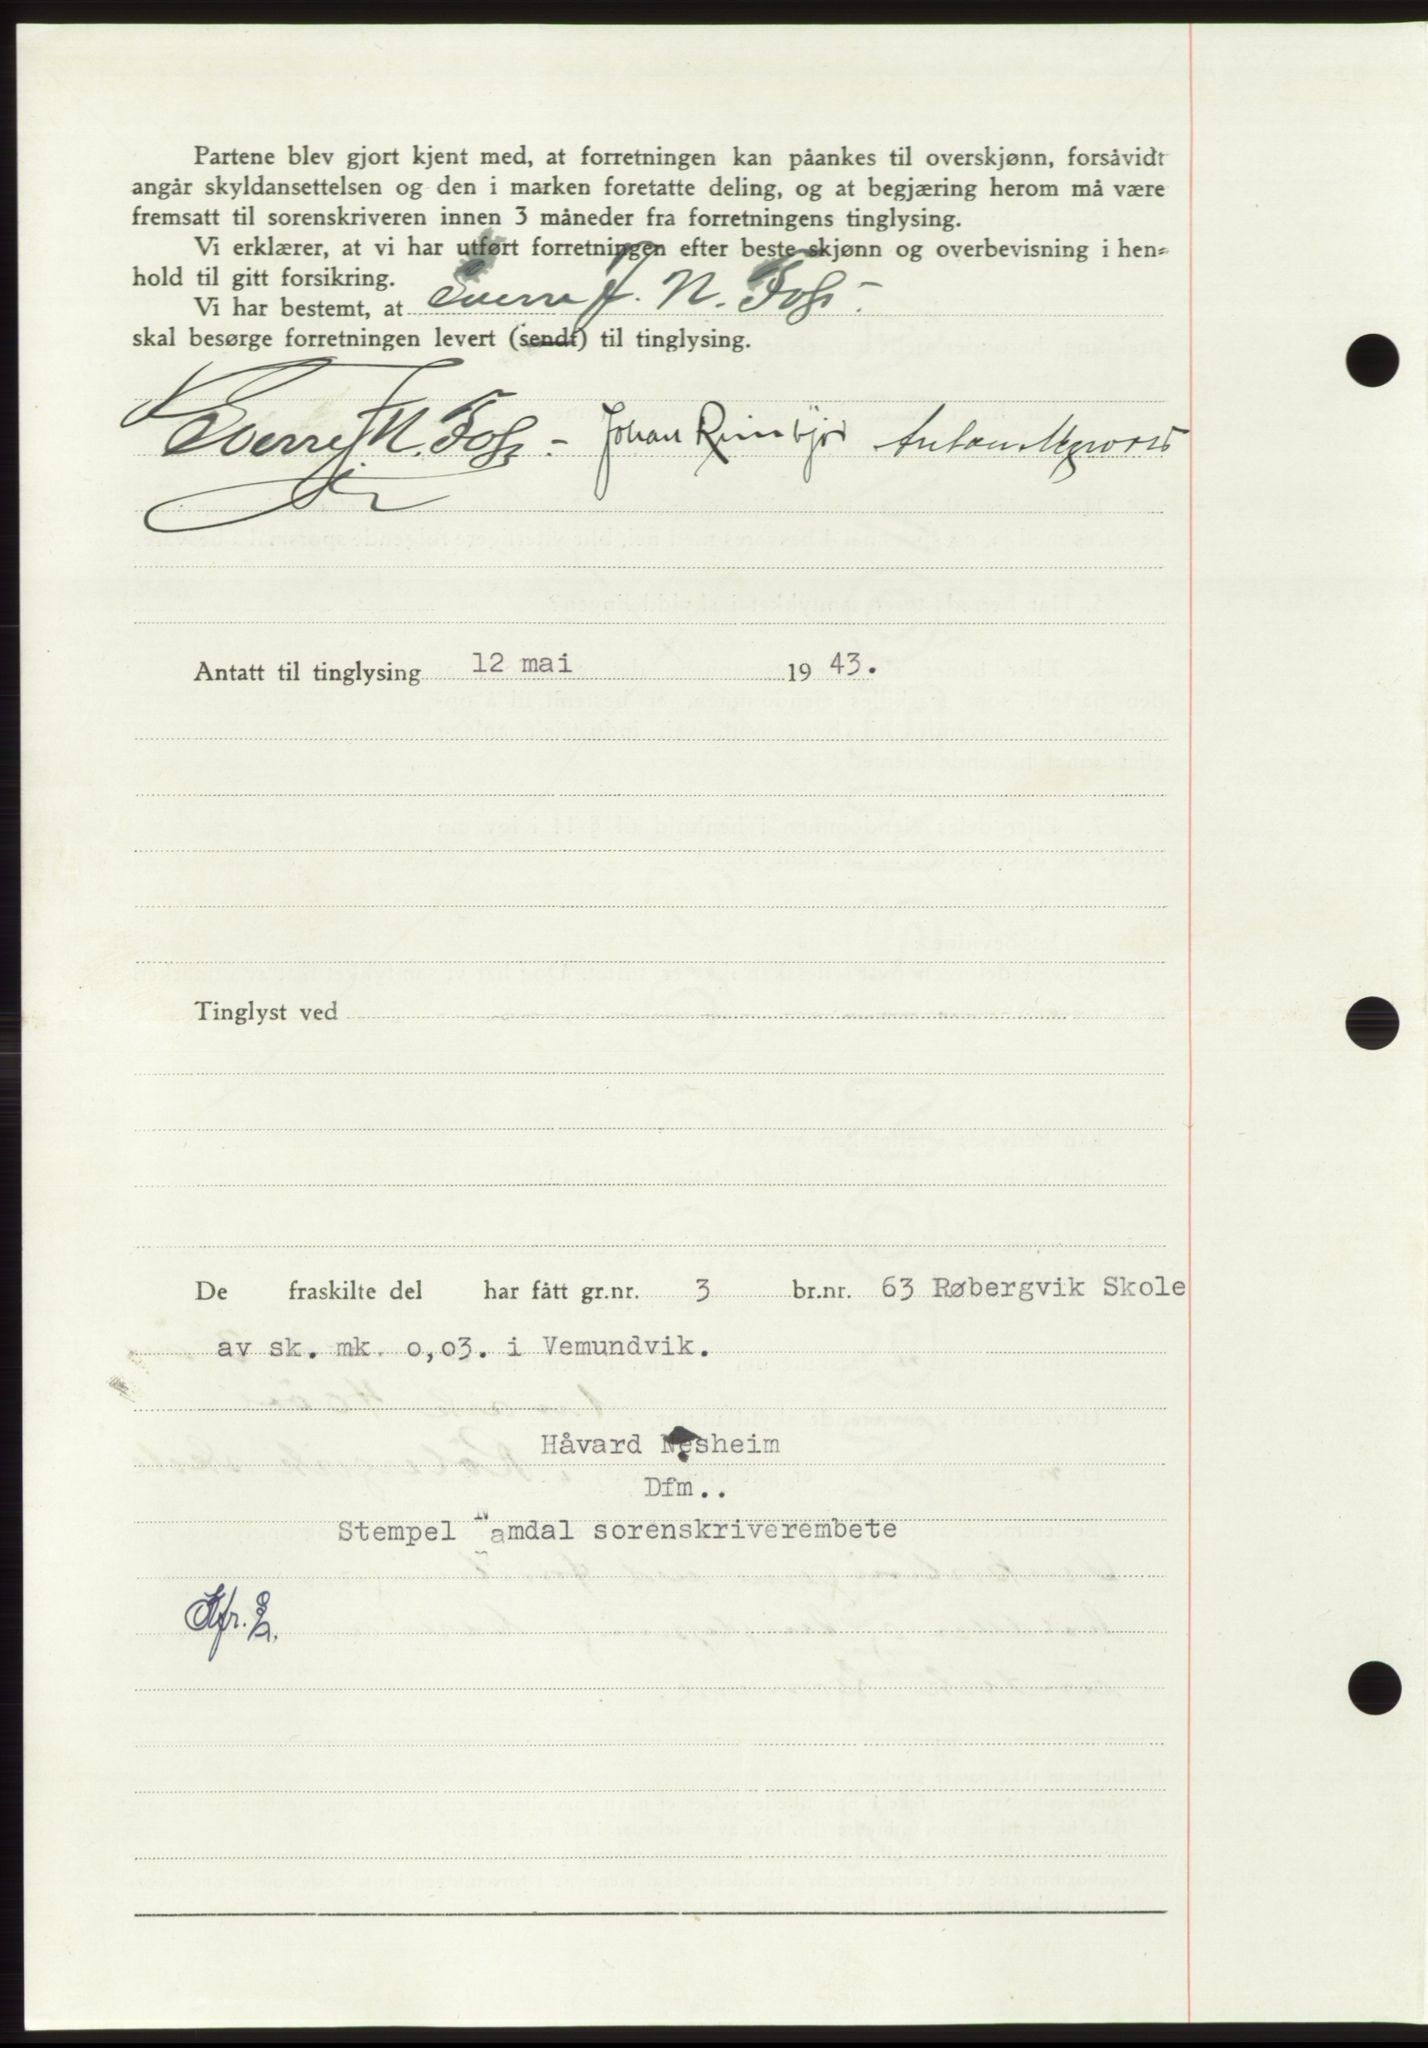 Partene blev gjort kjent med, at forretningen kan påankes til overskjønn, forsåvidt
angår skyldansettelsen og den i marken foretatte deling, og at begjæring herom må være
fremsatt til sorenskriveren innen 3 måneder fra forretningens tinglysing.
Vi erklærer, at vi har utført forretningen efter beste skjønn og overbevisning i hen-
hold til gitt forsikring.
Vi har bestemt, at Sverre J. N. Foss -
skal besørge forretningen levert (sendt) til tinglysing.
Sverre J. N. Foss - Johan Anton
Antatt til tinglysing 12 mai 19 43.
Tinglyst ved
De fraskilte del har fått gr.nr. 3 br.nr. 63 Røbergvik Skole
av sk. mk. o,o3. i Vemundvik.
Håvard Nesheim
Dfm..
Stempel Namdal sorenskriverembete